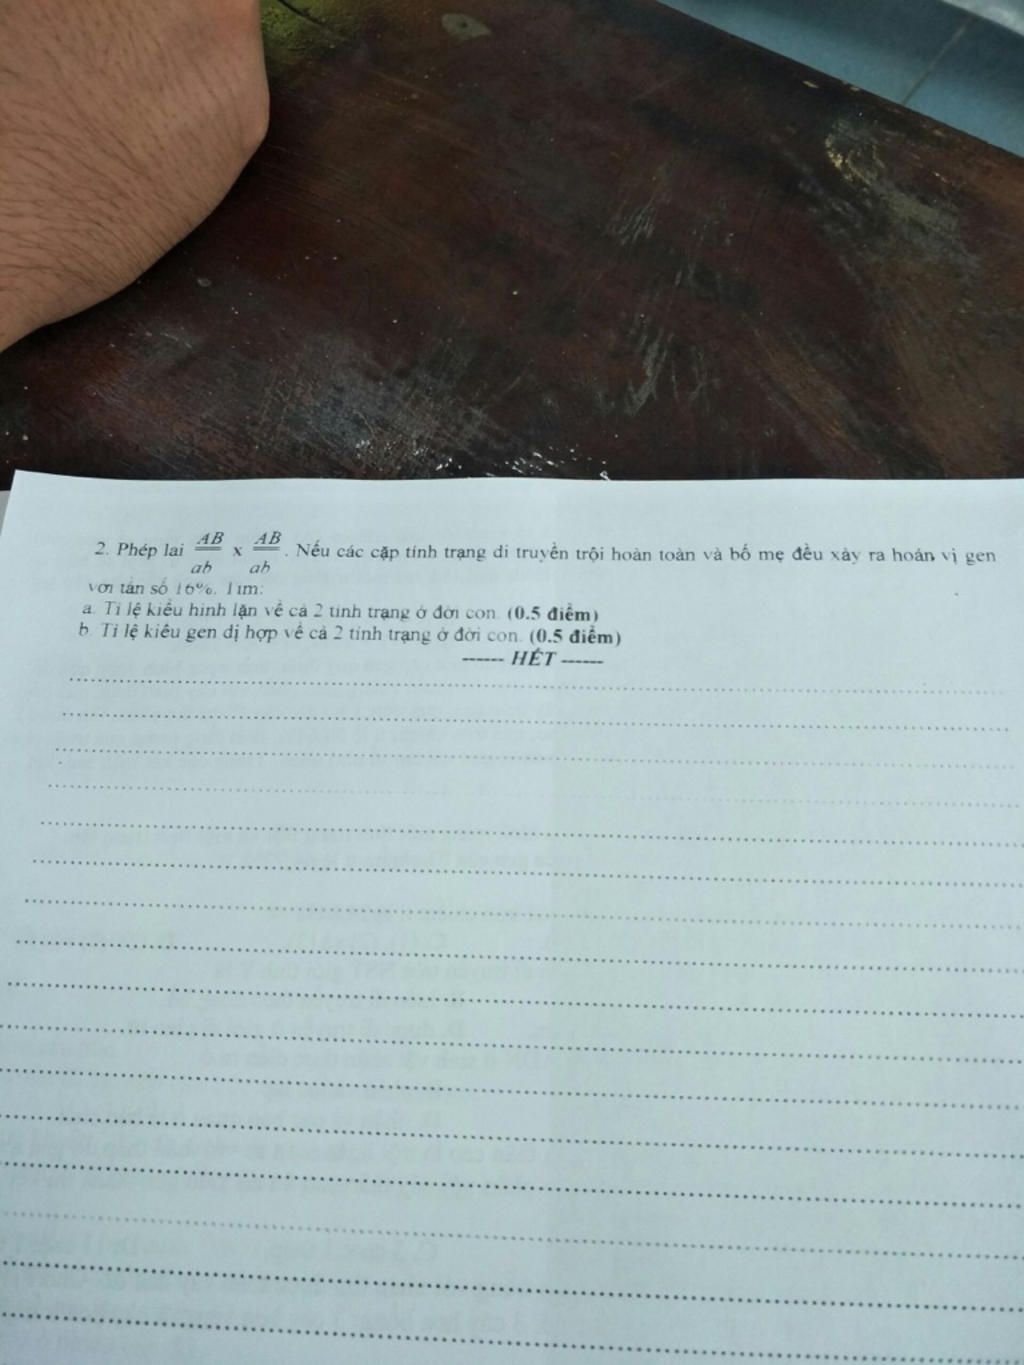 2. Phép lai AB/ab x AB/ab. Nếu các cặp tính trạng di truyền trội hoàn toàn và bố mẹ đều xảy ra hoán vị gen
với tần số 16%. Tìm:
a. Tỉ lệ kiểu hình lặn về cả 2 tính trạng ở đời con. (0.5 điểm)
b. Tỉ lệ kiểu gen dị hợp về cả 2 tính trạng ở đời con. (0.5 điểm)
------ HẾT ------